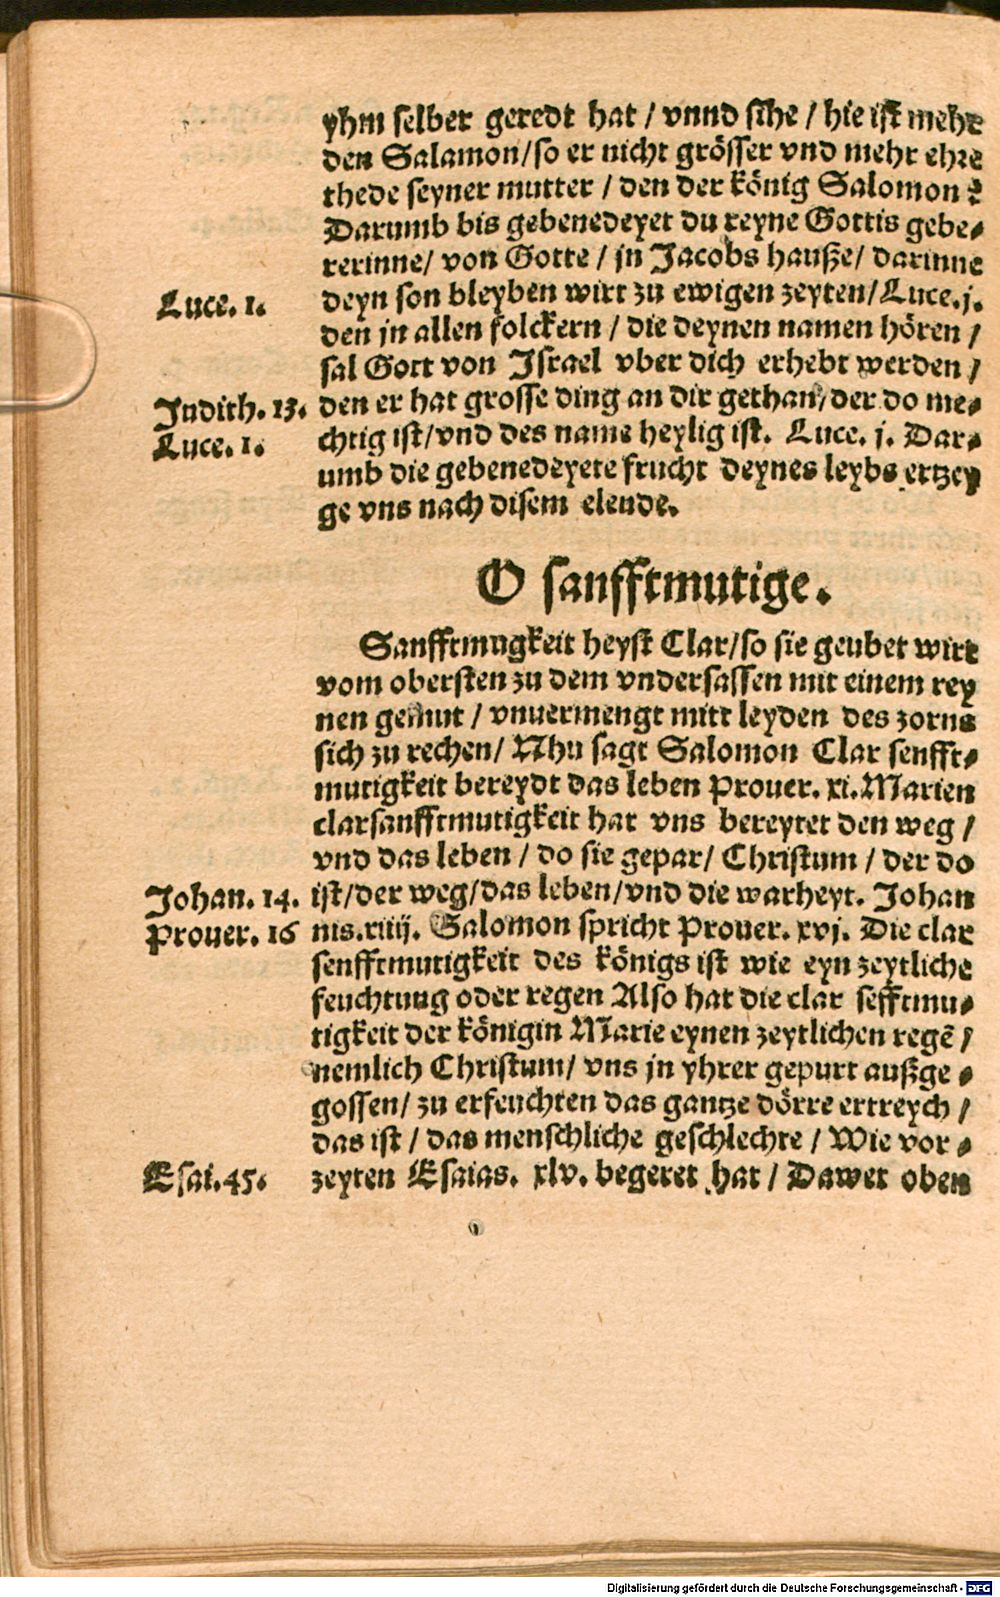 yhm selber geredt hat / vnnd sihe / hie ist mehr
den Salamon/so er nicht grösser vnd mehr ehre
thede seyner mutter / den der könig Salomon ?
Darumb bis gebenedeyet du reyne Gottis gebe⸗
rerinne/ von Gotte / jn Jacobs hauße/ darinne
Luce. 1. deyn son bleyben wirt zu ewigen zeyten/Luce.j.
den jn allen folckern / die deynen namen hören /
sal Gott von Israel vber dich erhebt werden /
Judith. 13. den er hat grosse ding an dir gethan/der do me⸗
Luce. 1. chtig ist/vnd des name heylig ist. Luce. j. Dar⸗
umb die gebenedeyete frucht deynes leybs ertzey
ge vns nach disem elende.
O sanfftmutige.
Sanfftmugkeit heyst Clar/so sie geubet wirt
vom obersten zu dem vndersassen mit einem rey
nen gemut / vnuermengt mitt leyden des zorns
sich zu rechen/ Nhu sagt Salomon Clar senfft⸗
mutigkeit bereydt das leben Prouer. xi. Marien
clarsanfftmutigkeit hat vns bereytet den weg /
vnd das leben / do sie gepar/ Christum / der do
Johan. 14. ist/der weg/das leben/vnd die warheyt. Johan
Prouer. 16 nis.xiiij. Salomon spricht Prouer. xvj. Die clar
senfftmutigkeit des königs ist wie eyn zeytliche
feuchtung oder regen Also hat die clar sefftmu⸗
tigkeit der königin Marie eynen zeytlichen regē /
nemlich Christum/ vns jn yhrer gepurt außge⸗
gossen/ zu erfeuchten das gantze dörre ertreych /
das ist / das menschliche geschlechte / Wie vor⸗
Esai.45. zeyten Esaias. xlv. begeret hat / Dawet oben
Digitalisierung gefördert durch die Deutsche Forschungsgemeinschaft - DFG